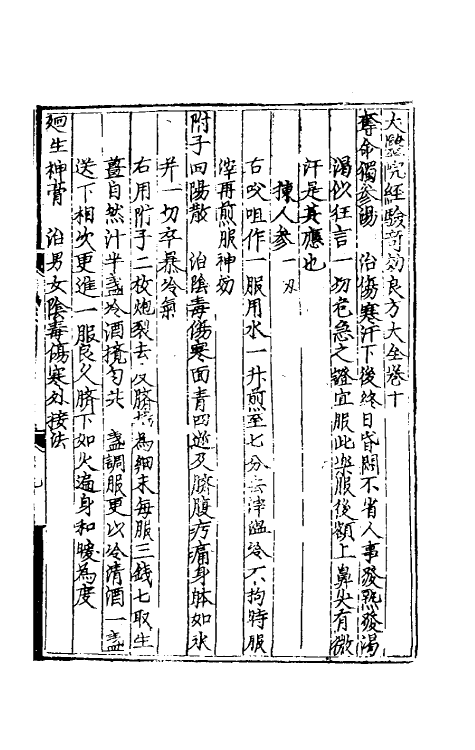 大醫院經驗奇効良方大全卷十
奪命獨參湯　治傷寒汗下後終日昏悶不省人事發熱發渴
渴似狂言一切危急之證宜服此藥服後額上鼻尖有微
汗是其應也
揀人參一刃
右㕮咀作一服用水一升煎至七分去滓溫冷不拘時服
滓再煎服神効
附子回陽散　治陰毒傷寒面青四逆及臍腹疼痛身體如氷
并一切卒暴冷氣
右用附子二枚炮裂去皮臍為細末每服三錢七取生
薑自然汁半盞冷酒攪勻共　盞調服更以冷清酒一盞
送下相次更進一服良久臍下如火遍身和暖為度
廻生神膏　治男女陰毒傷寒外接法